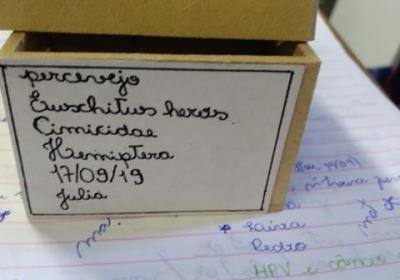 percevejo
Euschitus heros
Cimicidae
Hemiptera
17/09/19
Julia
Pedro
HPV e câncer